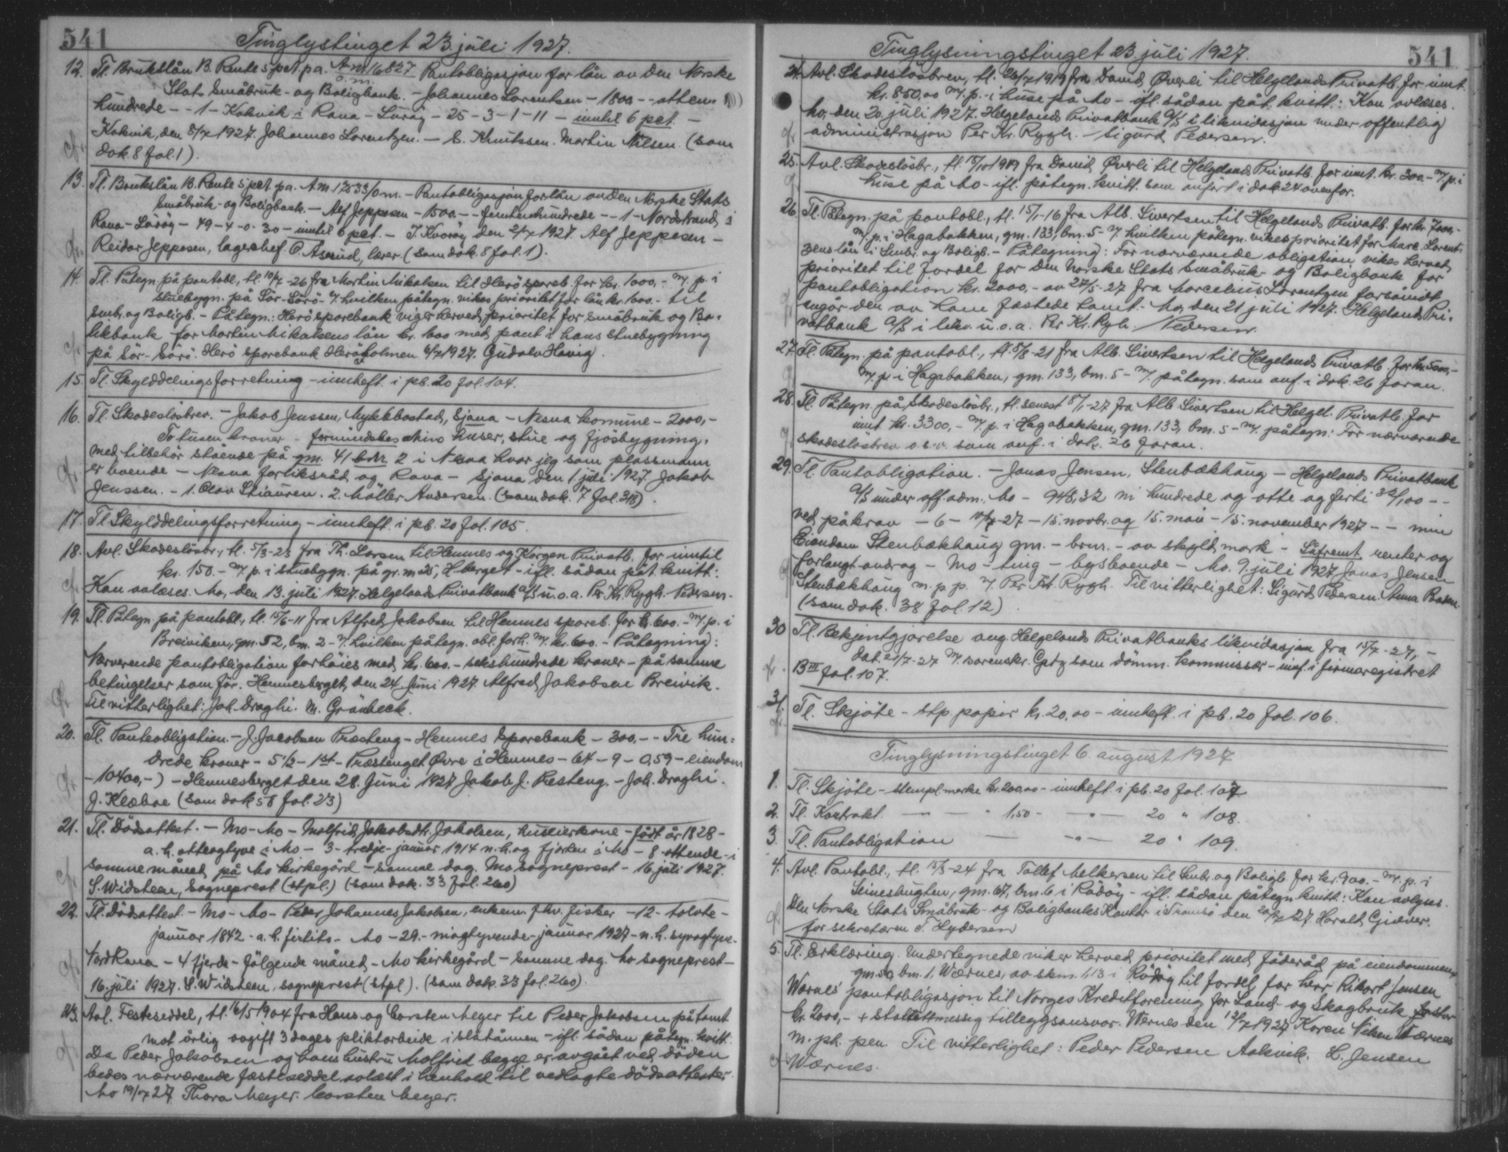 541
Tinglystinget 23 juli 1927.
12. Tl. Brukslån B. Rente 5 pct pa. A nr 16827 Pantobligasjon for lån av den Norske
Stats Småbruk- og Boligbank. - Johannes Lorentsen - 1800 - - atten
hundrede - - 1 - Kokvik i Rana - Lurøy - 25 - 3 - 1 - 11 - inntil 6 pct. -
Kokvik, den 8/7 1927 Johannes Lorentzen. - E. Knutssen. Martin Nilsen. (som
dok 8 fol. 1).
13. Tl. Brukslån B. Rente 5 pct pa. A nr 17533/o.m. - Pantobligasjon for lån av den Norske Stats
Småbruk- og Boligbank. - Alf Jeppesen - 1500. - - femtenhundrede - - 1 - Nordstrand i
Rana - Lurøy - 79 - 4 - 0 - 30 - inntil 6 pct. - den 2/7 1927 Alf Jeppesen -
Reidar Jeppesen, lagerchef P. lærer (som dok 8 fol. 1).
14. Tl. Påtegn på pantobl, tl. -26 fra Morten Mikalsen til Herø spareb. for kr. 1000,- m/ p. i
stuebygn. på Sør-Herø - m/ hvilken påtegn. vikes prioritet for lån kr. 600.- til
Småb. og Boligb. - Påtegn: Herø sparebank viger herved prioritet for småbruk og Bo-
ligbank for Morten Mikalsens lån kr. 600 med pant i hans stuebygning
på Sør-Herø. Herø sparebank Herøholmen 1927. Gudolv Havig.
15. Tl. Skylddelingsforretning - innheft i pb. 20 fol. 104.
16. Tl. Skadesløsbrev. - Jakob Jenssen, Myklebostad, Sjona - Nesna kommune - 2000,-
To tusen kroner - huser, stue og fjøsbygning,
med tilbehør stående på gnr. 41 br.nr 2 i Nesna hvor jeg som plassmann
er boende - Nesna forliksråd og Rana - Sjona den 1 juli 1927. Jakob
Jenssen. - 1. Olav Stiauren. 2. Møller Andersen. (som dok. 7 fol. 311).
17. Tl Skylddelingsforretning - innheft i pb. 20 fol. 105.
18. Avl. Skadesløsbr, tl. 5/3-23 fra Th. Larsen til Hemnes og Korgen Privatb. for inntil
kr. 150.- m/ p. i stuebygn. på gr. nr 25, Hberget - ifl. sådan påt. kvitt:
Kan avlæses. Mo, den 13. juli 1927 Helgelands Privatbank A/S u.o.a. Per Kr. Rygh. Pedersen.
19. Tl Påtegn på pantobl, tl. -11 fra Alfred Jakobsen til Hemnes spareb. for kr. 600.- m/ p. i
Breiviken, gnr. 52, bnr. 2 - m/ hvilken påtegn. obl. forh. m/ kr. 600.- Påtegning:
Nærværende pantobligation forhøies med kr. 600.- sekshundrede kroner - på samme
betingelser som før. Hemnesberget, den 24 juni 1927. Alfred Jakobsen Breivik.
Til vitterlighet: Joh. Draghi. M. Grønbeck.
20. Tl. Pantobligation. - J. Jacobsen Præsteng - Hemnes Sparebank - 300.- - Tre hun-
drede kroner - 5 1/2 - 1ste - Præstenget Øvre i Hemnes - 64 - 9 - 0,59 - eiendom
- 10400,-) - Hemnesberget den 28. Juni 1927 Jakob J. Presteng. - Joh. Draghi.
J. Klæboe (som dok 58 fol. 23)
21. Tl. Dødsattest. - Mo - Mo - Molfrid Jakobsdtr. Jakobsen, huseierkone - født år 1828 -
a. h. atteoglyve i Mo - 3 - tredje - januar 1914 n. h. og fjorten i Mo - 8 - attende - i
samme måned, på Mo kirkegård - samme dag. Mo sogneprest - 16 juli 1927.
S. Widsteen, sogneprest (stpl) (som dok. 33 fol. 260)
22. Tl. Dødsattest. - Mo - Mo - Peder Johannes Jakobsen, enkem. fhv. fisker - 12 - tolvte -
januar 1842 - a. h. firtito - Mo - 29. - niogtyvende - januar 1927 - n. h. syvogtyve.
Nord Rana - 4 fjerde - følgende måned - Mo kirkegård - samme dag. Mo sogneprest -
16 juli 1927. S. Widsteen, sogneprest (stpl). (som dok. 33 fol. 260).
23. Avl. Festeseddel, tl. 1904 fra Hans og Carsten Meyer til Peder Jakobsen på tomt
mot årlig avgift 3 dages pliktarbeide i slåttånnen - ifl. sådan påtegn. kvitt.
Da Peder Jakobsen og hans hustru Molfrid begge er avgått ved døden
bedes nærværende festeseddel avlæst i henhold til vedlagte dødsattester.
Mo 19/7 27 Thora Meyer. Carsten Meyer.
Tinglysningstinget 23 juli 1927.
541
24. Avl. Skadesløsbrev, tl. 1919 fra David Øverli til Helgelands Privatb. for inntil
kr. 850,00 m/ p. i huse på Mo - ifl. sådan påt. kvitt: Kan avlæses.
Mo, den 20 juli 1927. Helgelands Privatbank A/S i likvidasjon under offentlig
administrasjon Per Kr. Rygh. - Sigurd Pedersen.
25. Avl. Skadesløsbr., tl. 1919 fra David Øverli til Helgelands Privatb. for innt. kr. 300.- m/ p. i
huse på Mo - ifl. påtegn. kvitt. som anført i dok 24 ovenfor.
26. Tl. Påtegn på pantobl., tl. 15/1-16 fra Alb. Sivertsen til Helgelands Privatb. for kr.
m/ p. i Hagabakken, gnr. 133, bnr. 5 - m/ hvilken påtegn. vikes prioritet for Marc. Lorent-
zens lån i Småbr. og Boligb. - Påtegning: For nærværende obligation vikes herved
prioritet til fordel for Den Norske Stats Småbruk- og Boligbank for
pantobligation kr. 2000.- av 24/5-27 fra Marcelius Lorentzen forsåvidt
angår den av ham festede tomt. Mo, den 21 juli 1927. Helgelands Pri-
vatbank A/S i likv. u. o. a. Per Kr. Rygh. Pedersen.
27. Tl. Påtegn. på pantobl., tl. -21 fra Alb. Sivertsen til Helgelands Privatb. for kr 500,-
m/ p. i Hagabakken, gnr. 133, bnr. 5 - m/ påtegn. som anf. i dok. 26 foran.
28. Tl. Påtegn på Skadesløsbr., tl. senest 8/1-27 fra Alb. Sivertsen til Helgel. Privatb. for
innt kr. 3300.- m/ p. i Hagabakken, gnr. 133, bnr. 5 - m/ påtegn: For nærværende
skadesløsbrev o s v. som anf. i dok. 26 foran.
29. Tl. Pantobligation. - Jonas Jensen, Stenbækhaug - Helgelands Privatbank
A/S under off. adm. Mo - 948,32 ni hundrede og otte og førti 32/100 - -
ved påkrav - 6 - -27 - 15. novbr. og 15. mai - 15. november 1927 - - min
Eiendom Stenbækhaug gnr. - brnr. - av skyld mark - Såfremt renter og
forlangt avdrag - Mo - ting - bysboende - Mo. 9 juli 1927 Jonas Jensen
Stenbækhaug m. p. p. m/ Per Kr. Rygh Til vitterlighet: Sigurd Pedersen. Anna
(som dok. 38 fol. 12).
30 Tl. Bekjentgjørelse ang. Helgelands Privatbanks likvidasjon fra 15/7-27, -
dat. 21/7-27 m/ sorenskr. som dømm. kommissær - innf. i firmaregistret
B III fol. 107.
31. Tl. Skjøte - stp papir kr. 20,00 - innheft. i pb. 20 fol. 106.
Tinglysningstinget 6 august 1927
1. Tl. Skjøte - stempl. merke kr. - innheft i pb. 20 fol. 107
2. Tl. Kontrakt - " 1,50 - - " - 20 " 108.
3. Tl. Pantobligation - - " - 20 " 109.
4. Avl. Pantobl., tl. -24 fra Tollef Melkersen til Småb. og Boligb for kr. 900.- m/ p. i
Seinesbugten, gnr. 67, bnr. 6 i Rødøy - ifl. sådan påtegn. kvitt: Kan avlyses.
Den Norske Stats Småbruk- og Boligbanks Kontor i Tromsø den 27 Harald Gjæver.
for sekretæren T. Lydersen
5. Tl. Erklæring. Undertegnede viker herved prioritet med føderåd på eiendommen
gnr. 50, bnr. 1, Wærnes, av skm. 1.13 i Rødøy til fordel for herr Rikart Jensen
Wærnes' pantobligasjon til Norges Kreditforening for Land- og Skogbruk, for
kr. 2000,- + statuttmessig tilleggsansvar. Wærnes den 12/7 1927 Karen Wærnes
m. ph. pen. Til vitterlighet: Peder Pedersen Aakvik. L. Jensen
Wærnes.